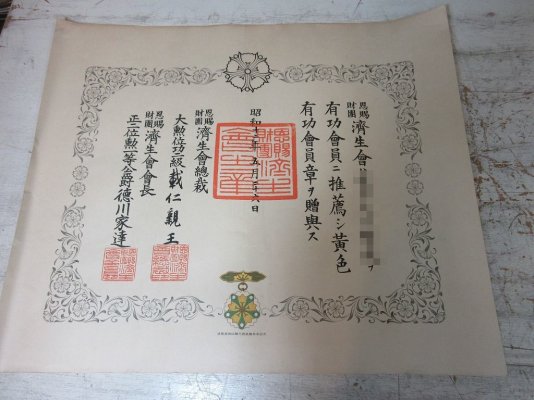 恩賜財團濟生會
ヲ
有功會員ニ推薦シ黃色
有功會員章ヲ贈與ス
昭和十三年五月二十六日
恩賜財團濟生會總裁
大勲位功一級載仁親王
恩賜財團濟生會會長
正二位勲一等公爵德川家達